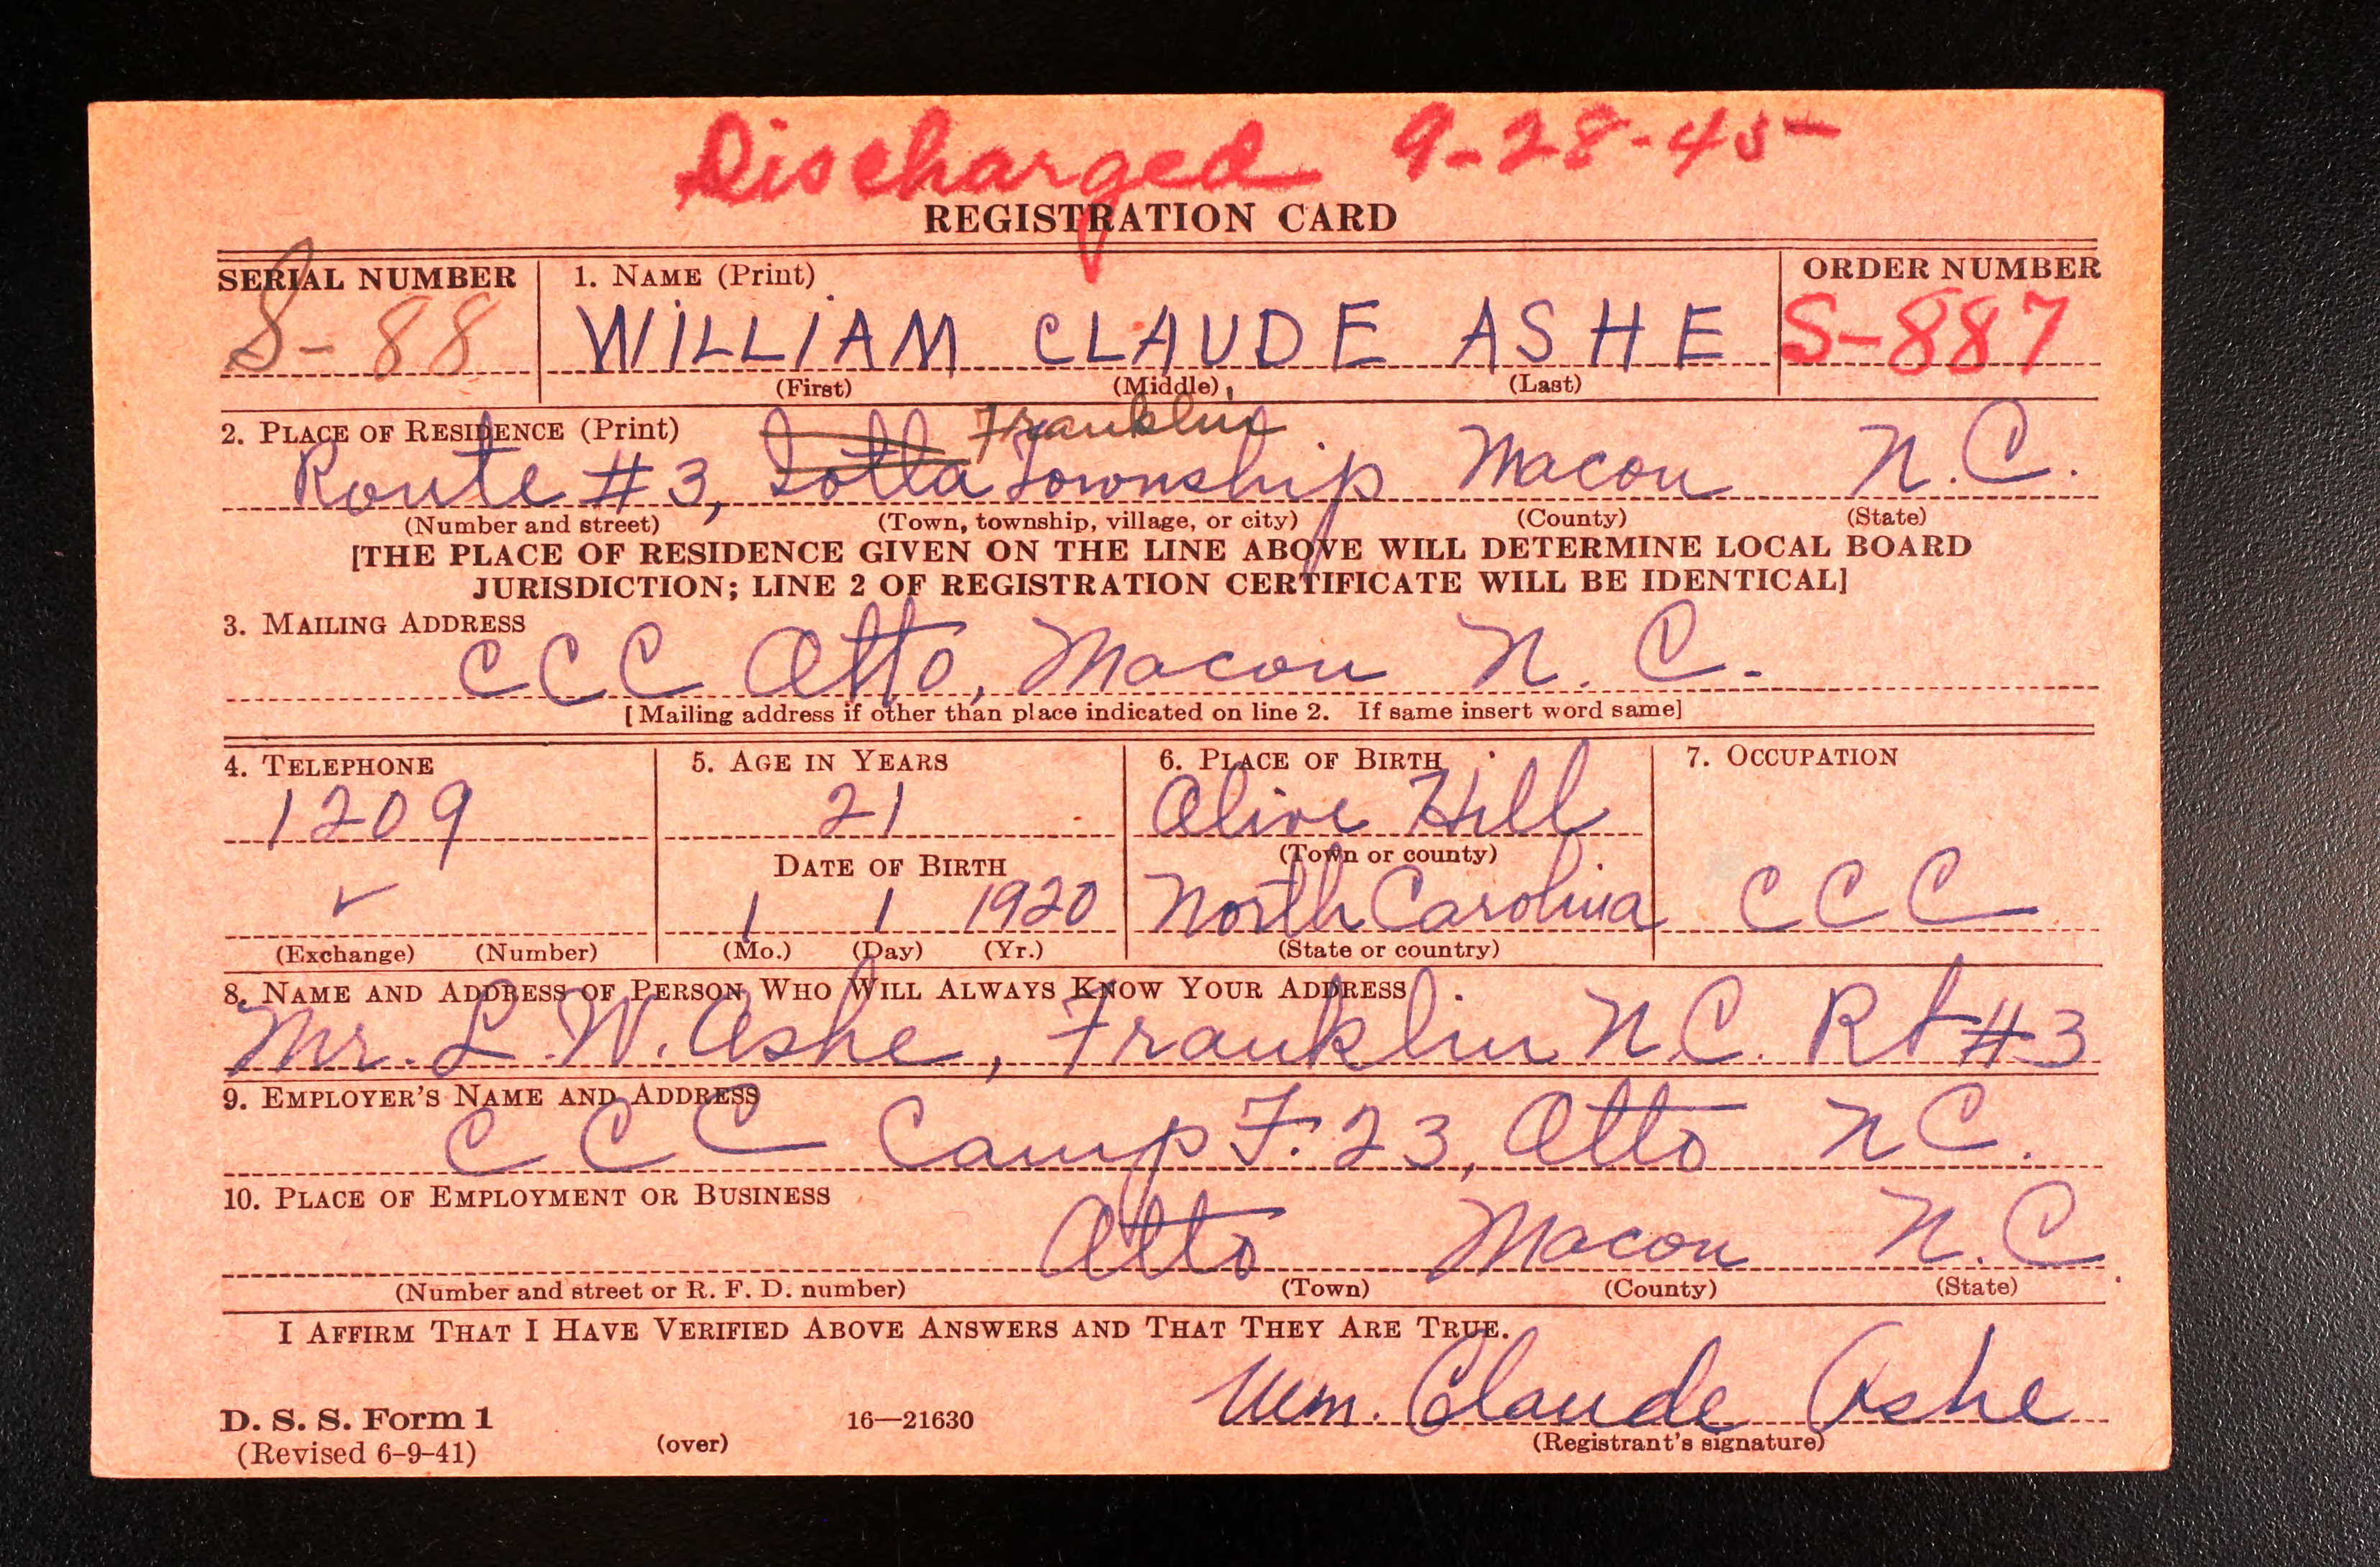 Discharged 9-28-45
REGISTRATION CARD
SERIAL NUMBER 1. NAME (Print) ORDER NUMBER
S-88 WILLIAM CLAUDE ASHE S-887
(First) (Middle) (Last)
2. PLACE OF RESIDENCE (Print) Franklin
Route #3, Iotla Township Macon N.C.
(Number and street) (Town, township, village, or city) (County) (State)
[THE PLACE OF RESIDENCE GIVEN ON THE LINE ABOVE WILL DETERMINE LOCAL BOARD
JURISDICTION; LINE 2 OF REGISTRATION CERTIFICATE WILL BE IDENTICAL]
3. MAILING ADDRESS
CCC Otto, Macon N. C.
[Mailing address if other than place indicated on line 2. If same insert word same]
4. TELEPHONE 5. AGE IN YEARS 6. PLACE OF BIRTH 7. OCCUPATION
1209 21 Olive Hill
DATE OF BIRTH (Town or county)
✓ 1 1 1920 North Carolina CCC
(Exchange) (Number) (Mo.) (Day) (Yr.) (State or country)
8. NAME AND ADDRESS OF PERSON WHO WILL ALWAYS KNOW YOUR ADDRESS
Mr. L.W. Ashe, Franklin N.C. Rt #3
9. EMPLOYER'S NAME AND ADDRESS
CCC Camp F.23, Otto N C.
10. PLACE OF EMPLOYMENT OR BUSINESS
Otto Macon N.C
(Number and street or R. F. D. number) (Town) (County) (State)
I AFFIRM THAT I HAVE VERIFIED ABOVE ANSWERS AND THAT THEY ARE TRUE.
Wm. Claude Ashe
D. S. S. Form 1 16—21630
(Revised 6-9-41) (over) (Registrant's signature)